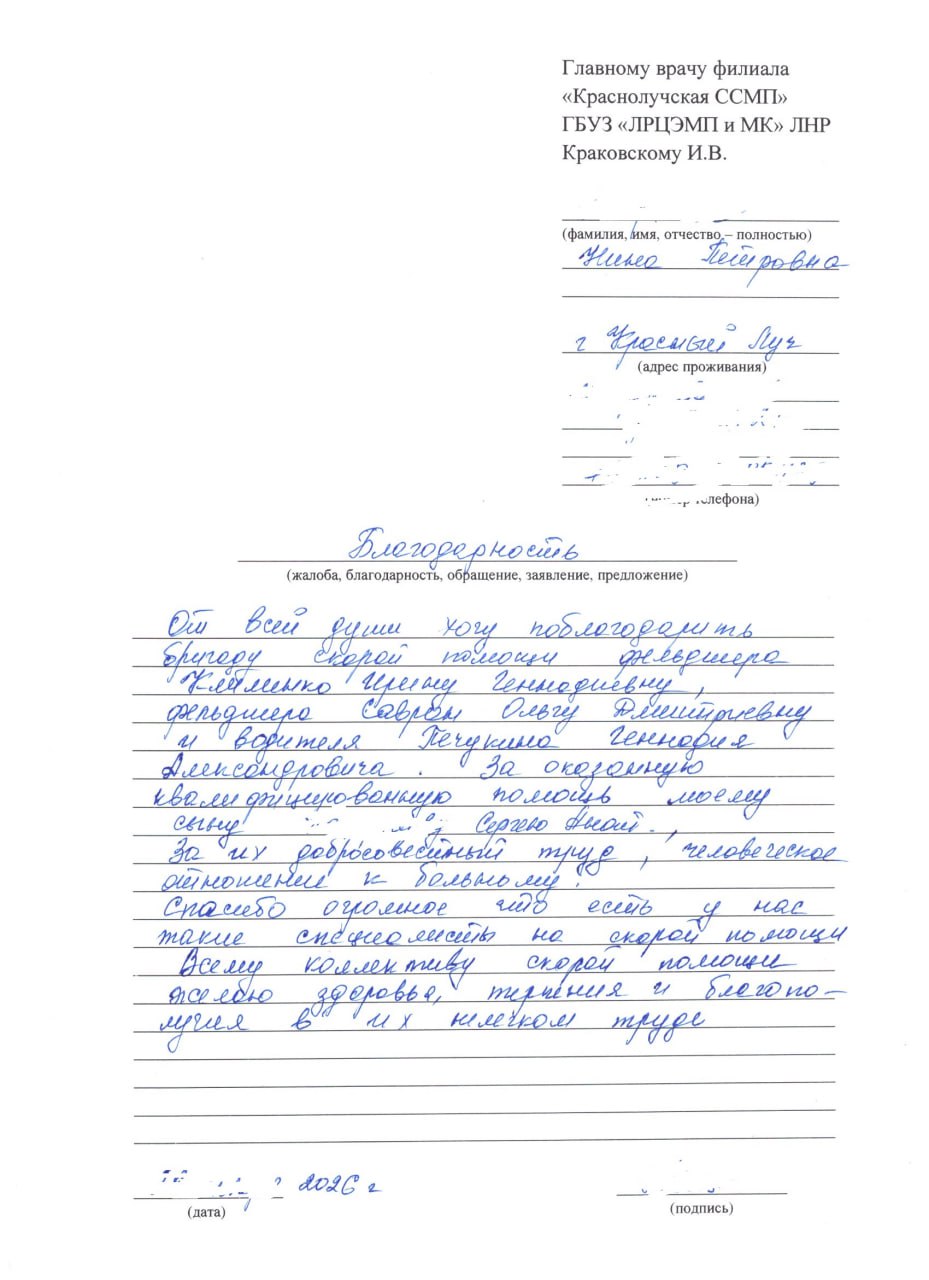 Главному врачу филиала
«Краснолучская ССМП»
ГБУЗ «ЛРЦЭМП и МК» ЛНР
Краковскому И.В.
(фамилия, имя, отчество – полностью)
Нина Петровна
г Красный Луч
(адрес проживания)
телефона)
Благодарность
(жалоба, благодарность, обращение, заявление, предложение)
От всей души хочу поблагодарить
бригаду скорой помощи фельдшера
Клименко Ирину Геннадиевну,
фельдшера Савран Ольгу Дмитриевну
и водителя Печукина Геннадия
Александровича. За оказанную
квалифицированную помощь моему
сыну Сергею
За их добросовестный труд, человеческое
отношение к больному.
Спасибо огромное что есть у нас
такие специалисты на скорой помощи
Всему коллективу скорой помощи
желаю здоровья, терпения и благопо-
лучия в их нелегком труде
2026 г
(дата)
(подпись)